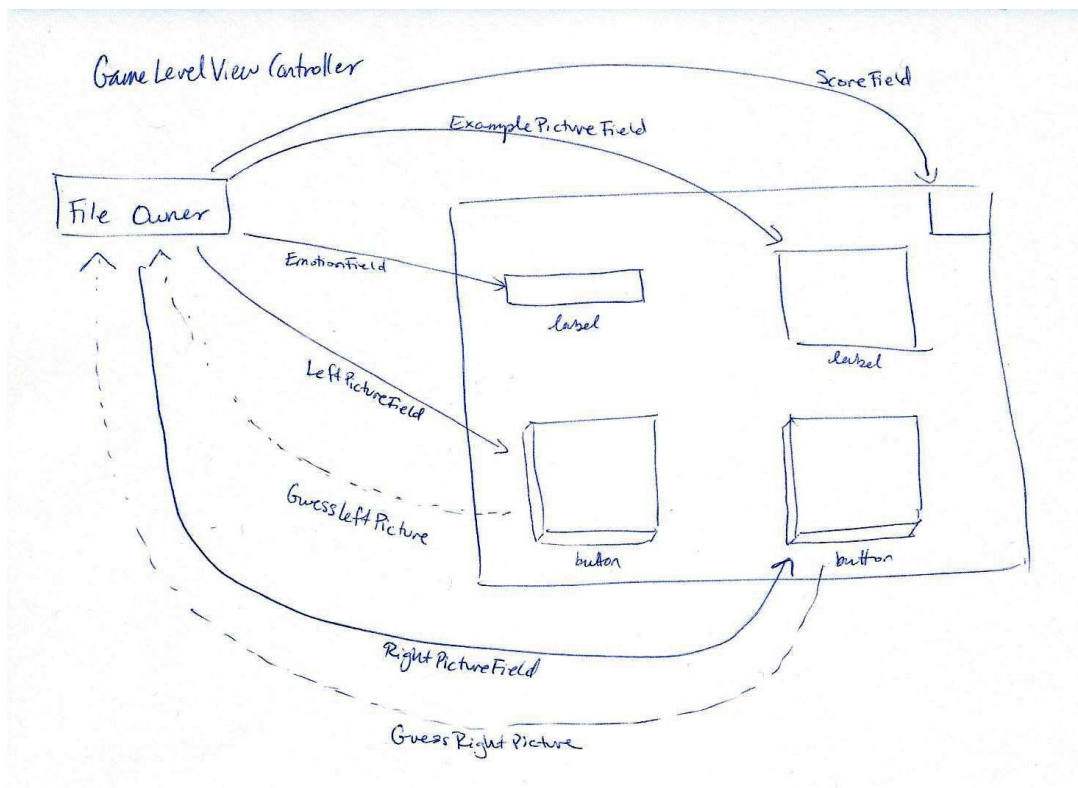 Game Level View Controller
ScoreField
ExamplePictureField
File Owner
EmotionField
label
label
LeftPictureField
GuessLeftPicture
button
button
RightPictureField
GuessRightPicture